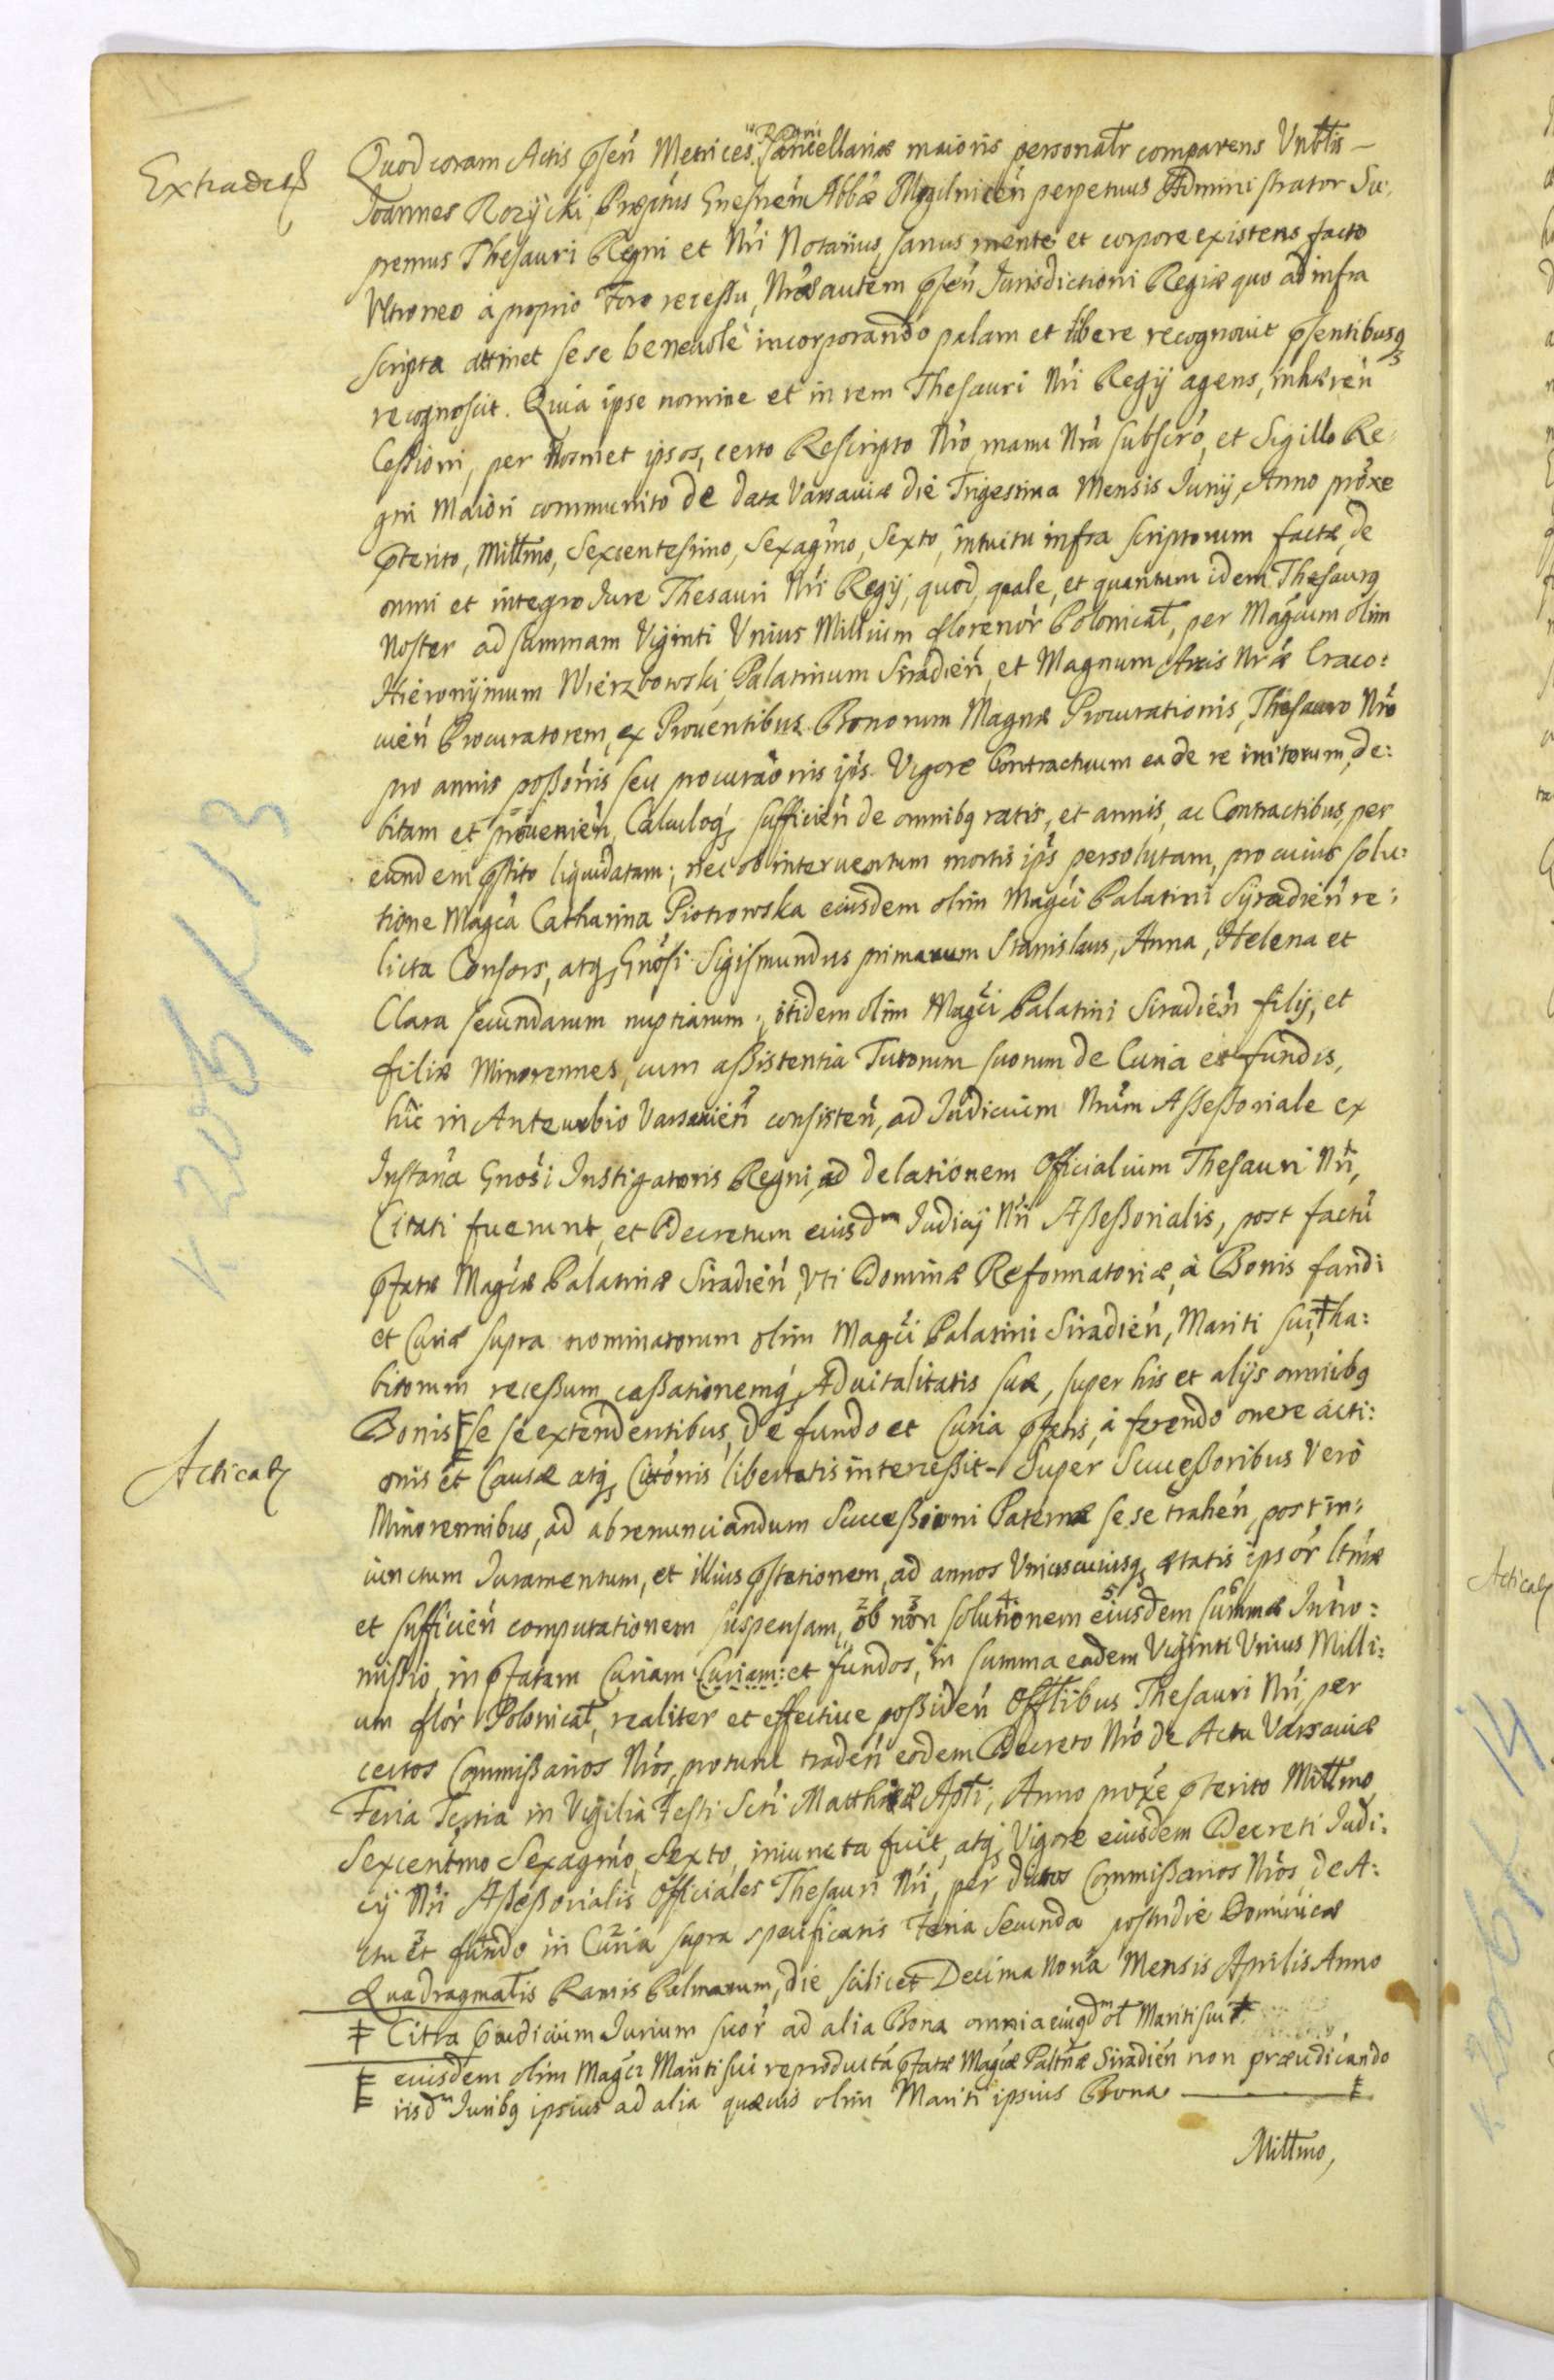 Quod coram Actis pñtń Metrices Regni Cancellariæ maioris personałr comparens Vnbłłis —
Extradit
Joannes Rozÿcki, Præptus Gnesneń Abbæ Mogilniceń perpetuus Administrator Su:
premus Thesauri Regni et Nri Notarius, sanus mente et corpore existens, facto
Vltroneo à proprio Foro recessu, Nræ autem pseń Jurisdictioni Regiæ quo ad infra
scripta attinet sese beneuole incorporando palam et libere recognouit psentibusq
recognoscit. Quia ipse nomine et in rem Thesauri Nri Regij agens, inhæreń
Cessioni, per Nosmet ipsos, certo Rescripto Nro, manu Nra subscro, et Sigillo Re:
gni Maiori communito de data Varsauiæ die Trigesima Mensis Junij, Anno proxe
pterito, Millmo, Sexcentesimo, Sexagmo, Sexto, intuitu infra scriptorum factæ, de
omni et integro Jure Thesauri Nri Regij, quod, quale, et quantum idem Thesaurg
Noster ad summam Viginti Vnius Millium florenor Polonicał, per Magcum olim
Hieronÿmum Wierzbowski, Palatinum Siradień, et Magnum Arcis Nræ Craco:
uień Procuratorem, ex Prouentibus Bonorum Magnæ Procurationis, Thesauro Nro
pro annis possonis seu procuraonis ipis. Vigore Contractuum ea de re initorum, de:
bitam et prouenień, Calculoq sufficień de omnibg ratis, et annis, ac Contractibus, per
eundem pstito liquidatam; nec ob interuentum mortis ipis persolutam, pro cuius solu:
tione Magca Catharina Piotrowska eiusdem olim Magci Palatini Syradień re:
licta Consors, atq Gnosi Sigismundus primarum Stanislaus, Anna, Helena et
Clara secundarum nuptiarum; itidem olim Magci Palatini Siradień filij, et
filiæ Minorennes, cum assistentia Tutorum suorum de Curia et fundis,
hic in Anteurbio Varsauień consisteń, ad Judicium Nrum Assessoriale ex
Instana Gnosi Instigatoris Regni, ad delationem Officialium Thesauri Nri,
Citati fuerunt, et Decretum eiusdm Judicij Nri Assessorialis, post factu
pfatæ Magcæ Palatinæ Siradień, Vti Dominæ Reformatoriæ, à Bonis fundi
et Curiæ supra nominatorum olim Magci Palatini Siradień, Mariti sui, ‡ ha:
bitorum recessum cassationemq Aduitalitatis suæ, super his et alijs omnibg
Bonis se se extendentibus, de fundo et Curia pfatis, à ferendo onere acti:
Acticat
onis et Causæ atq Cittonis libertatis intercessit. Super Successoribus Vero
Minorennibus, ad abrenunciandum Successioni Paternæ se se traheń, post in:
iunctum Juramentum, et illius pstationem, ad annos Vniuscuiusq ætatis ipsor ltmæ
et sufficień computationem suspensam, ob non solutionem eiusdem summæ Intro:
missio, in pfatam Curiam Curiam: et fundos, in summa eadem Viginti Vnius Milli:
um flor Polonicał, realiter et effectiue possideń Offłibus Thesauri Nri, per
certos Commissarios Nros, pro tunc tradeń eodem Decreto Nro de Actu Varsauiæ
Feria Tertia in Vigilia Festi Scti Matthæi Apłi, Anno proxe pterito Millmo
Sexcentmo Sexagmo, Sexto, iniuncta fuit, atq Vigore eiusdem Decreti Judi:
cij Nri Assessorialis Officiales Thesauri Nri, per dictos Commissarios Nros de A:
ctu et fundo in Curia supra specificatis Feria Secunda postridie Dominicæ
Quadragmałis Ramis Palmarum, die scilicet Decima Nona Mensis Aprilis Anno
‡ Citra Præiudicium Jurium suor ad alia Bona omnia eiusdm oł Mariti sui ‡
eiusdem olim Magci Mariti sui reproducta pfatæ Magcæ Palłnæ Siradień non præiudicando
iisdm Juribg ipsius ad alia quæuis olim Mariti ipsius Bona
Millmo,
K 206/13
Acticat
K 206/14